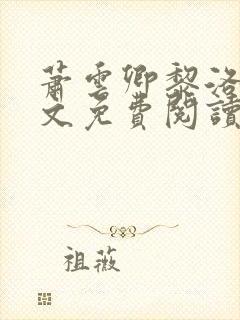 蕭雲卿黎洛
文免費閱讀
祖薇